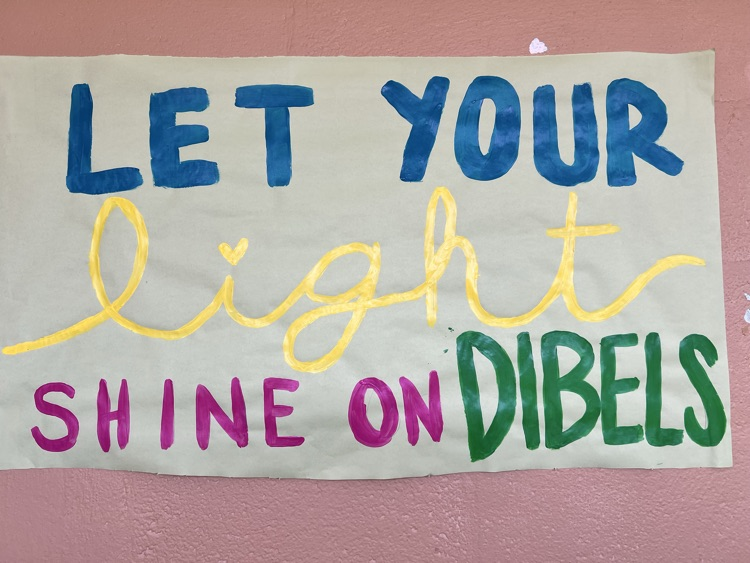 LET YOUR
light
SHINE ON DIBELS